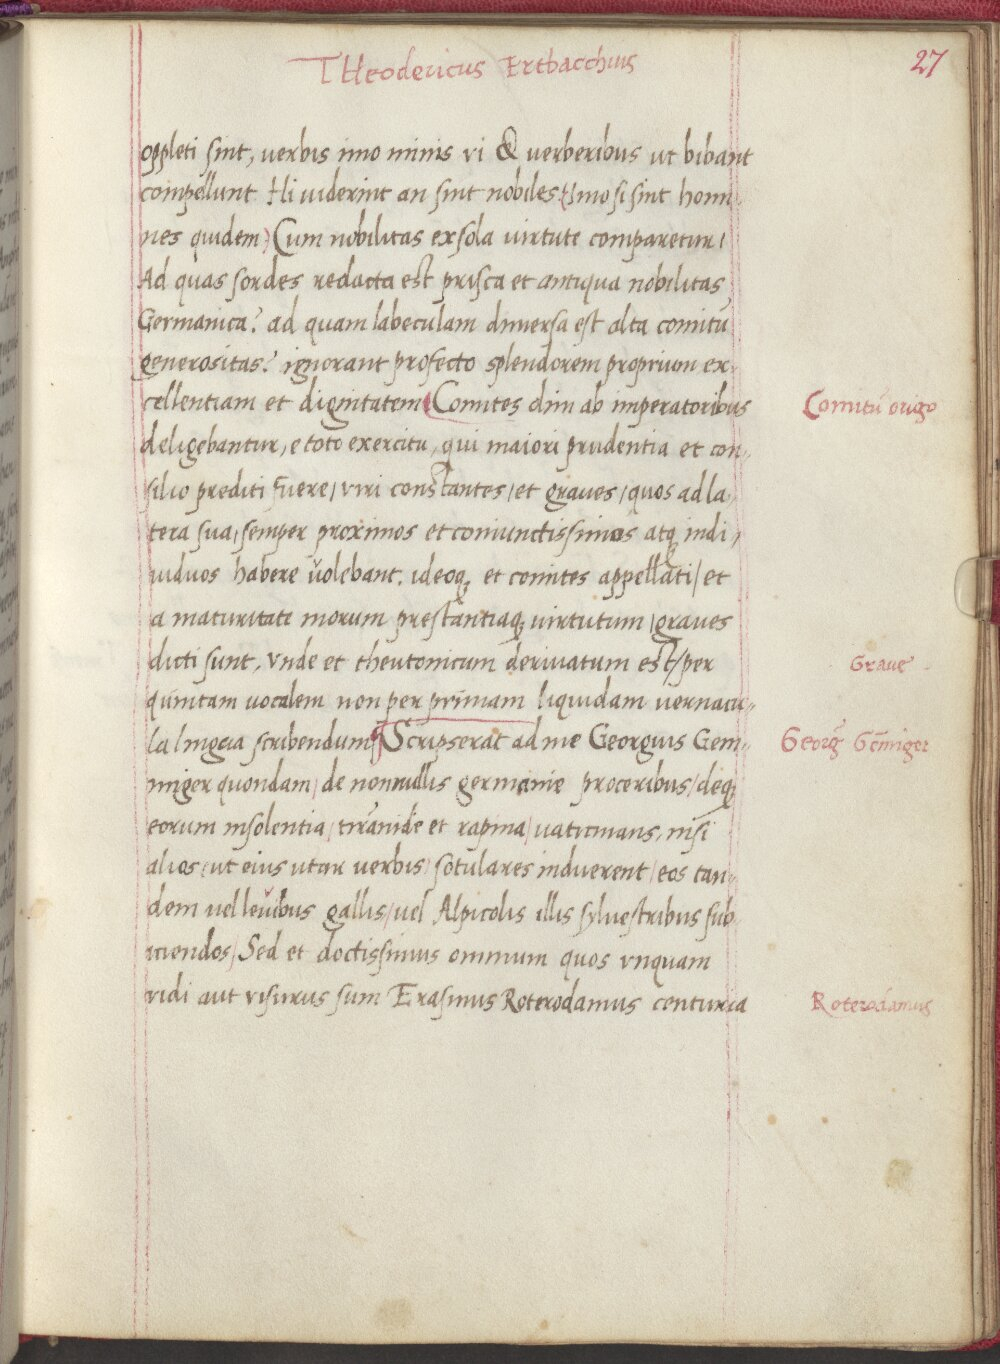 THeodericus Ertbacchius
27
oppleti sint, verbis imo minis vi & verberibus ut bibant
compellunt Hi viderint an sint nobiles (Imo si sint homi
nes quidem) Cum nobilitas ex sola virtute comparetur/
Ad quas sordes redacta est prisca et antiqua nobilitas
Germanica? ad quam labeculam diversa est alta comitū
generositas? ignorant profecto splendorem proprium ex-
cellentiam et dignitatem Comites dim ab imperatoribus
Comitū origo
deligebantur, e toto exercitu, qui maiori prudentia et con-
silio prediti fuere/ viri constantes/ et graves/ quos ad la-
tera sua, semper proximos et coniunctissimos atq indi-
viduos habere volebant. ideoq et comites appellati/ et
a maturitate morum prestantiaq virtutum/ graves
dicti sunt, Vnde et theutonicum derivatum est/ per
Grave
quintam vocalem non per primam liquidam vernacu-
la lingua scribendum Scripserat ad me Georgius Gem-
Georg Gēmiger
miger quondam/ de nonnullis germanie proceribus/ deq
eorum insolentia/ tirānide et rapina/ vaticinans, nisi
alios (ut eius utar verbis) sotulares induerent/ eos tan-
dem vel levibus gallis/ vel Alpicolis illis sylvestribus sub
iciendos/ Sed et doctissimus omnium quos vnquam
vidi aut visurus sum Erasmus Roterodamus centuria
Roterodamus